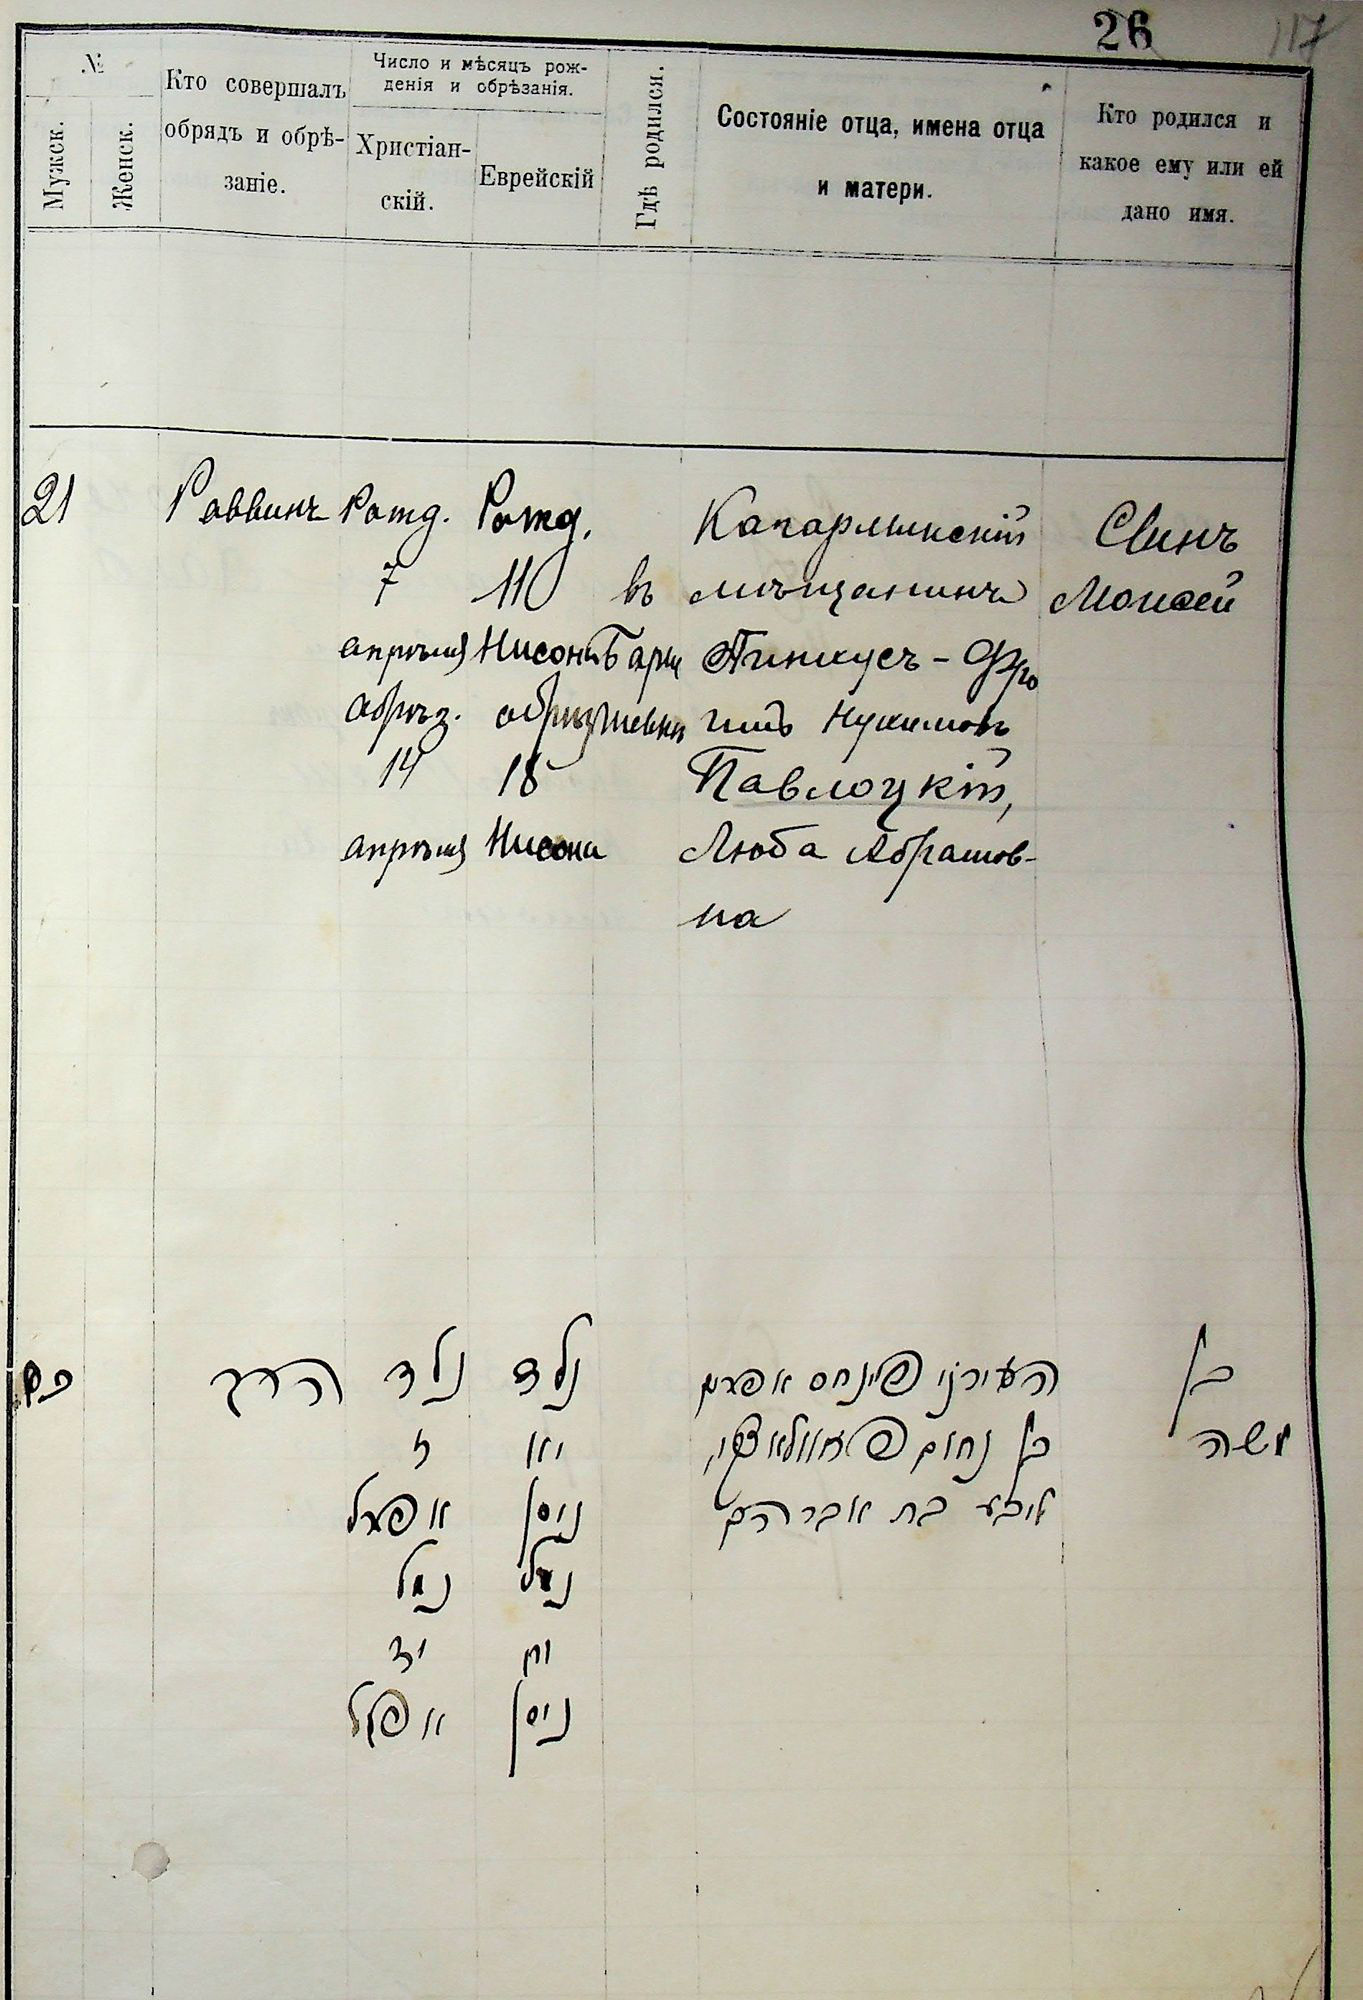 26
117
№
Мужск.
Женск.
Кто совершалъ
обрядъ и обрѣ-
заніе.
Число и мѣсяцъ рож-
денія и обрѣзанія.
Христіан-
скій.
Еврейскій
Гдѣ родился.
Состояніе отца, имена отца
и матери.
Кто родился и
какое ему или ей
дано имя.
21
Раввинъ
Рожд.
7
апрѣля
Обрѣз.
14
апрѣля
Рожд.
11
Нисона
обрѣз
18
Нисона
въ
мѣщанинъ
Пинкусъ - Фро
имъ Нухимовъ
Павлоцкій,
Люба Абрамов-
на
Сынъ
Моисей
נולד
ז
אפריל
נמול
יד
אפריל
נולד
יא
ניסן
נמול
יח
ניסן
העירוני פינחס אפרים
בן נחום פאוולאצקי,
ליבע בת אברהם
בן
משה